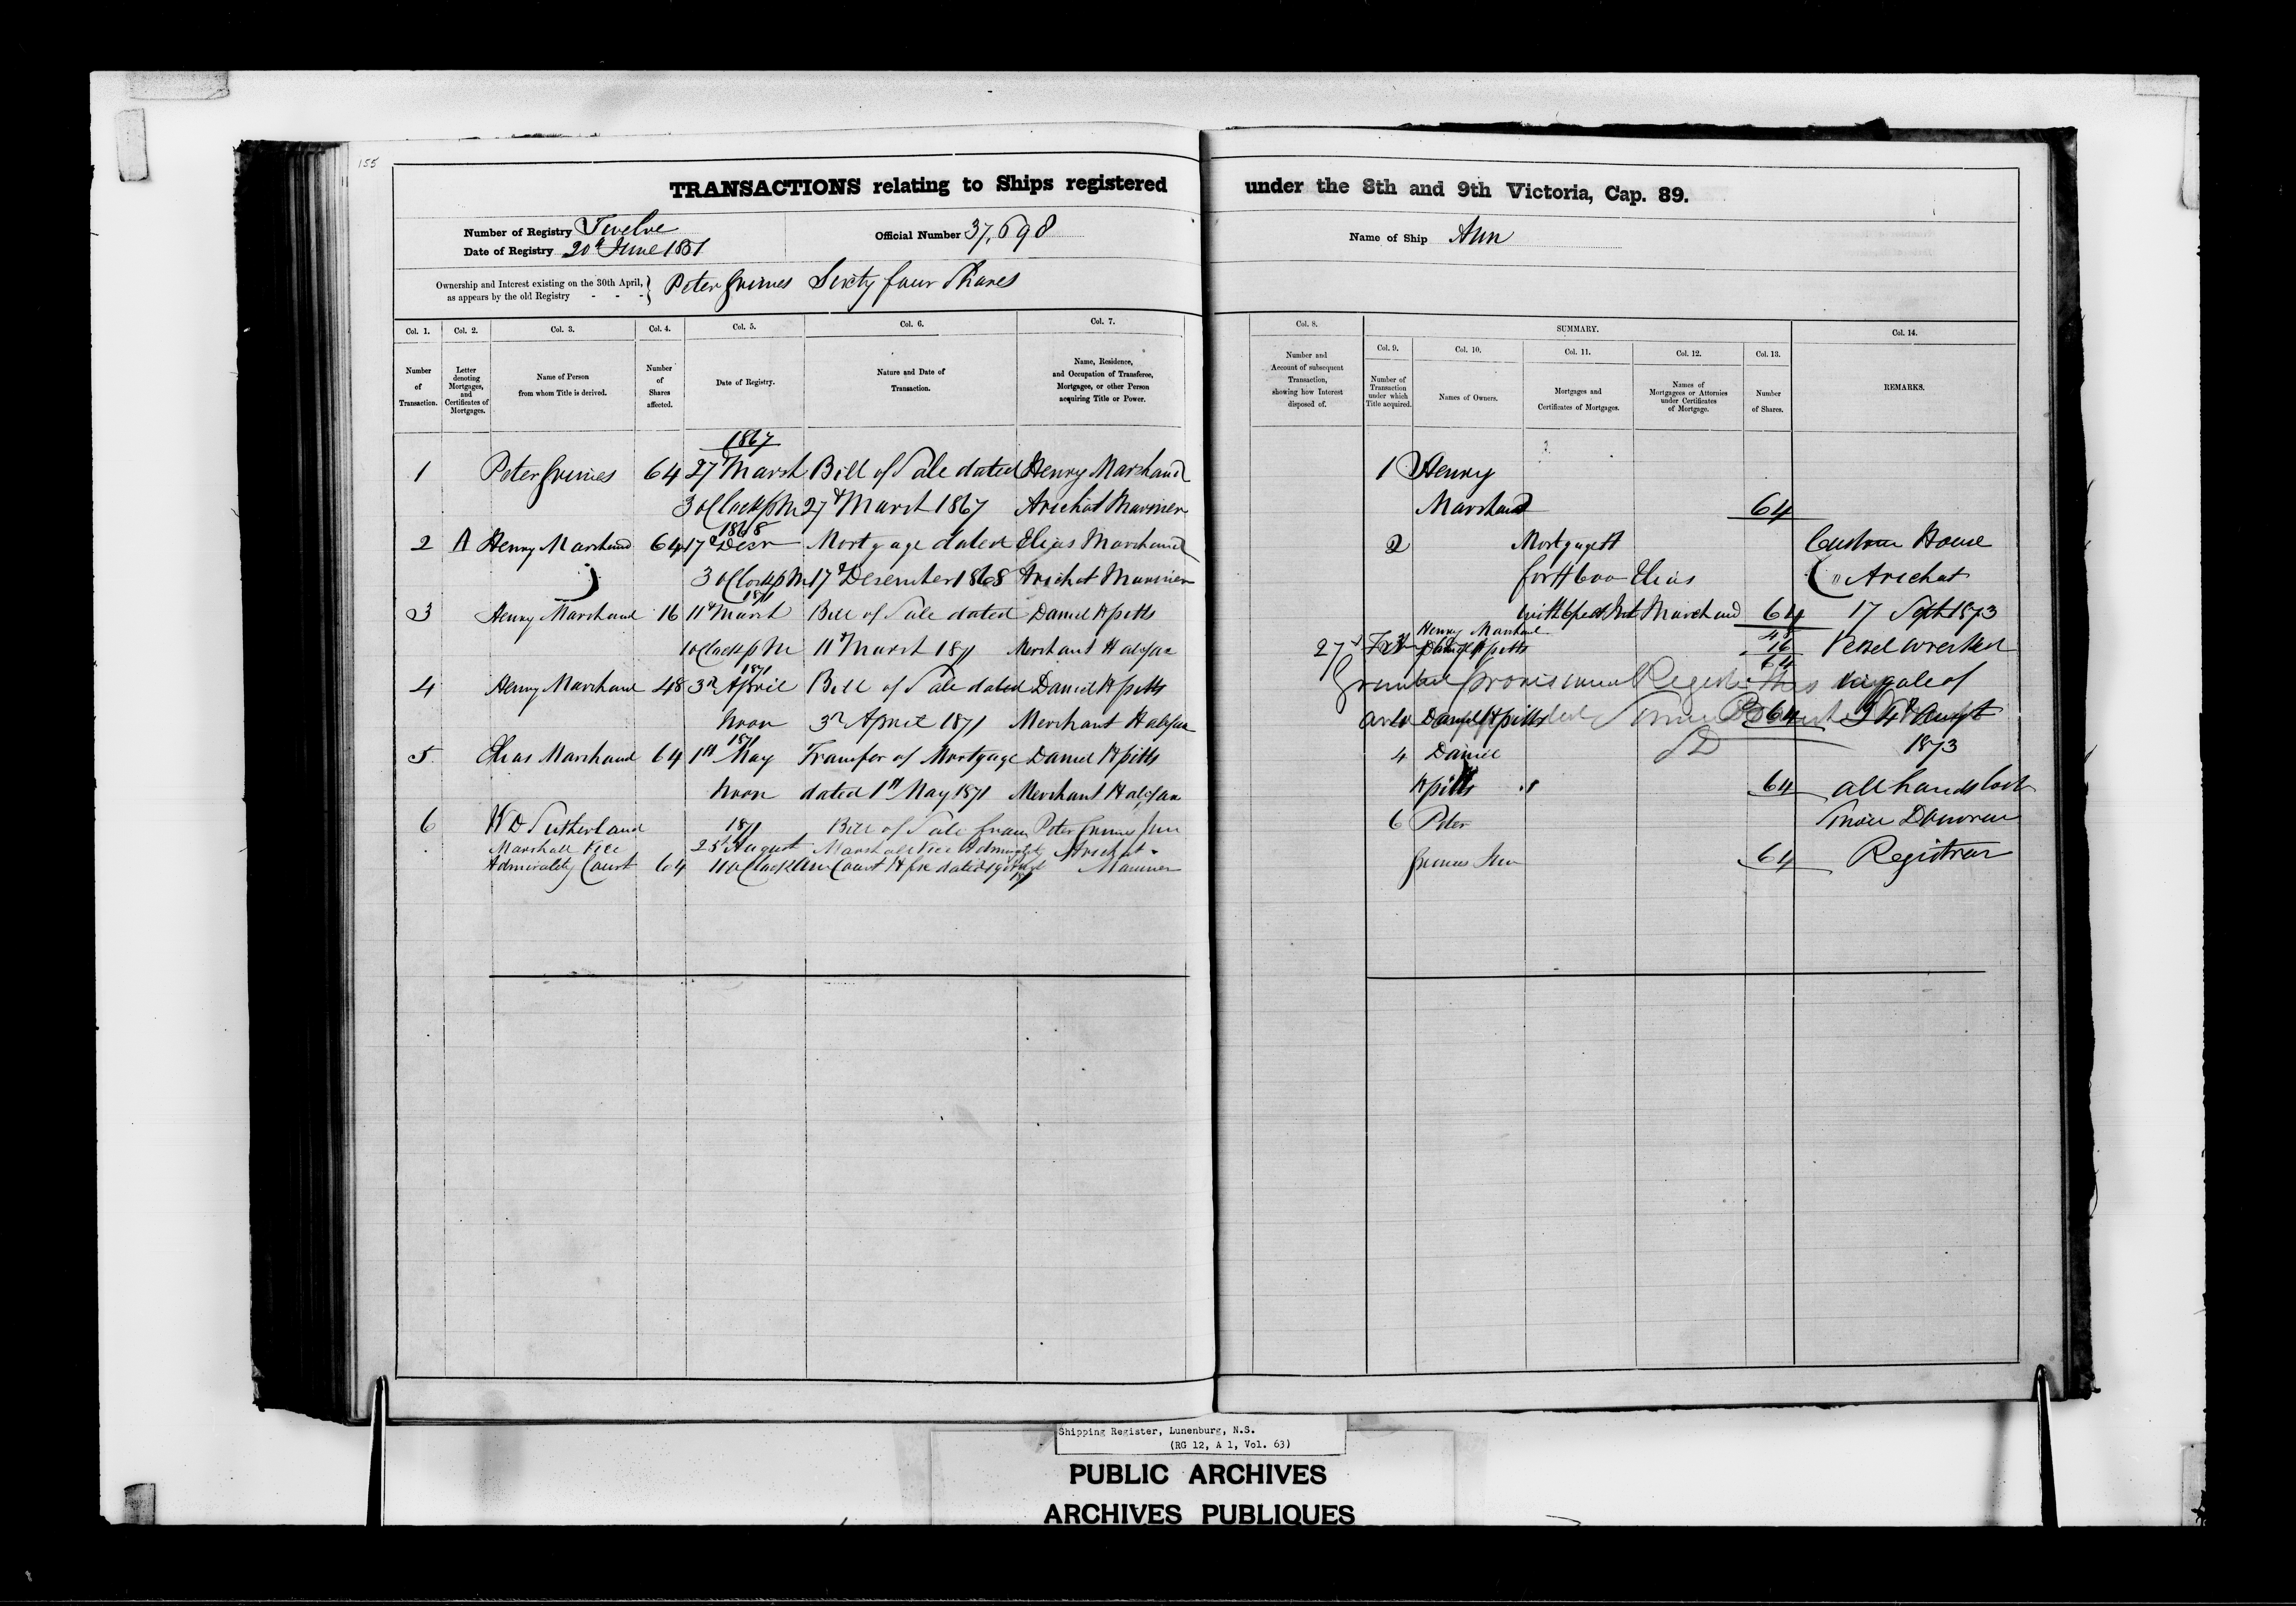 155
TRANSACTIONS relating to Ships registered under the 8th and 9th Victoria, Cap. 89.
Number of Registry Twelve
Date of Registry 20th June 1851
Official Number 37,698
Name of Ship Ann
Ownership and Interest existing on the 30th April, as appears by the old Registry - - - } Peter Grimes Sixty four Shares
Col. 1. Col. 2. Col. 3. Col. 4. Col. 5. Col. 6. Col. 7. Col. 8. SUMMARY. Col. 14.
Col. 9. Col. 10. Col. 11. Col. 12. Col. 13.
Number of Transaction.
Letter denoting Mortgages, and Certificates of Mortgages.
Name of Person from whom Title is derived.
Number of Shares affected.
Date of Registry.
Nature and Date of Transaction.
Name, Residence, and Occupation of Transferee, Mortgagee, or other Person acquiring Title or Power.
Number and Account of subsequent Transaction, showing how Interest disposed of.
Number of Transaction under which Title acquired.
Names of Owners.
Mortgages and Certificates of Mortgages.
Names of Mortgagees or Attornies under Certificates of Mortgage.
Number of Shares.
REMARKS.
1867
1 Peter Grimes 64 27 March Bill of Sale dated Henry Marchand
3 oClock PM 27th March 1867 Arichat Mariner
1868
2 A Henry Marchand 64 17th Decr Mortgage dated Elias Marchand
3 oClock PM 17th Desember 1868 Arichat Mariner
1871
3 Henry Marchand 16 11th March Bill of Sale dated Daniel H Pitts
1 oClock PM 11th March 1871 Merchant Halifax
1871
4 Henry Marchand 48 3rd April Bill of Sale dated Daniel H Pitts
Noon 3rd April 1871 Merchant Halifax
1871
5 Elias Marchand 64 1st May Transfer of Mortgage Daniel H Pitts
Noon dated 1st May 1871 Merchant Halifax
6 W D Sutherland 1871 Bill of Sale from Peter Grimes Jun
Marshall Vice 25th August Marshall Vice Admiralty Arichat
Admirality Court 64 11 oClock AM Court Hfx dated Mariner
1 Henry
Marchand 64
2 Mortgage A
for $600 Elias
with 6 per ct Int Marchand 64
Henry Marchand 48
Daniel H Pitts 16
64
Daniel H Pitts 64
4 Daniel
H Pitts 64
6 Peter
Grimes Jun 64
Custom House
Arichat
17 Sept 1873
Vessel wrecked
in gale of
24th August
1873
all hands lost
Simon Donovan
Registrar
Shipping Register, Lunenburg, N.S.
(RG 12, A 1, Vol. 63)
PUBLIC ARCHIVES
ARCHIVES PUBLIQUES